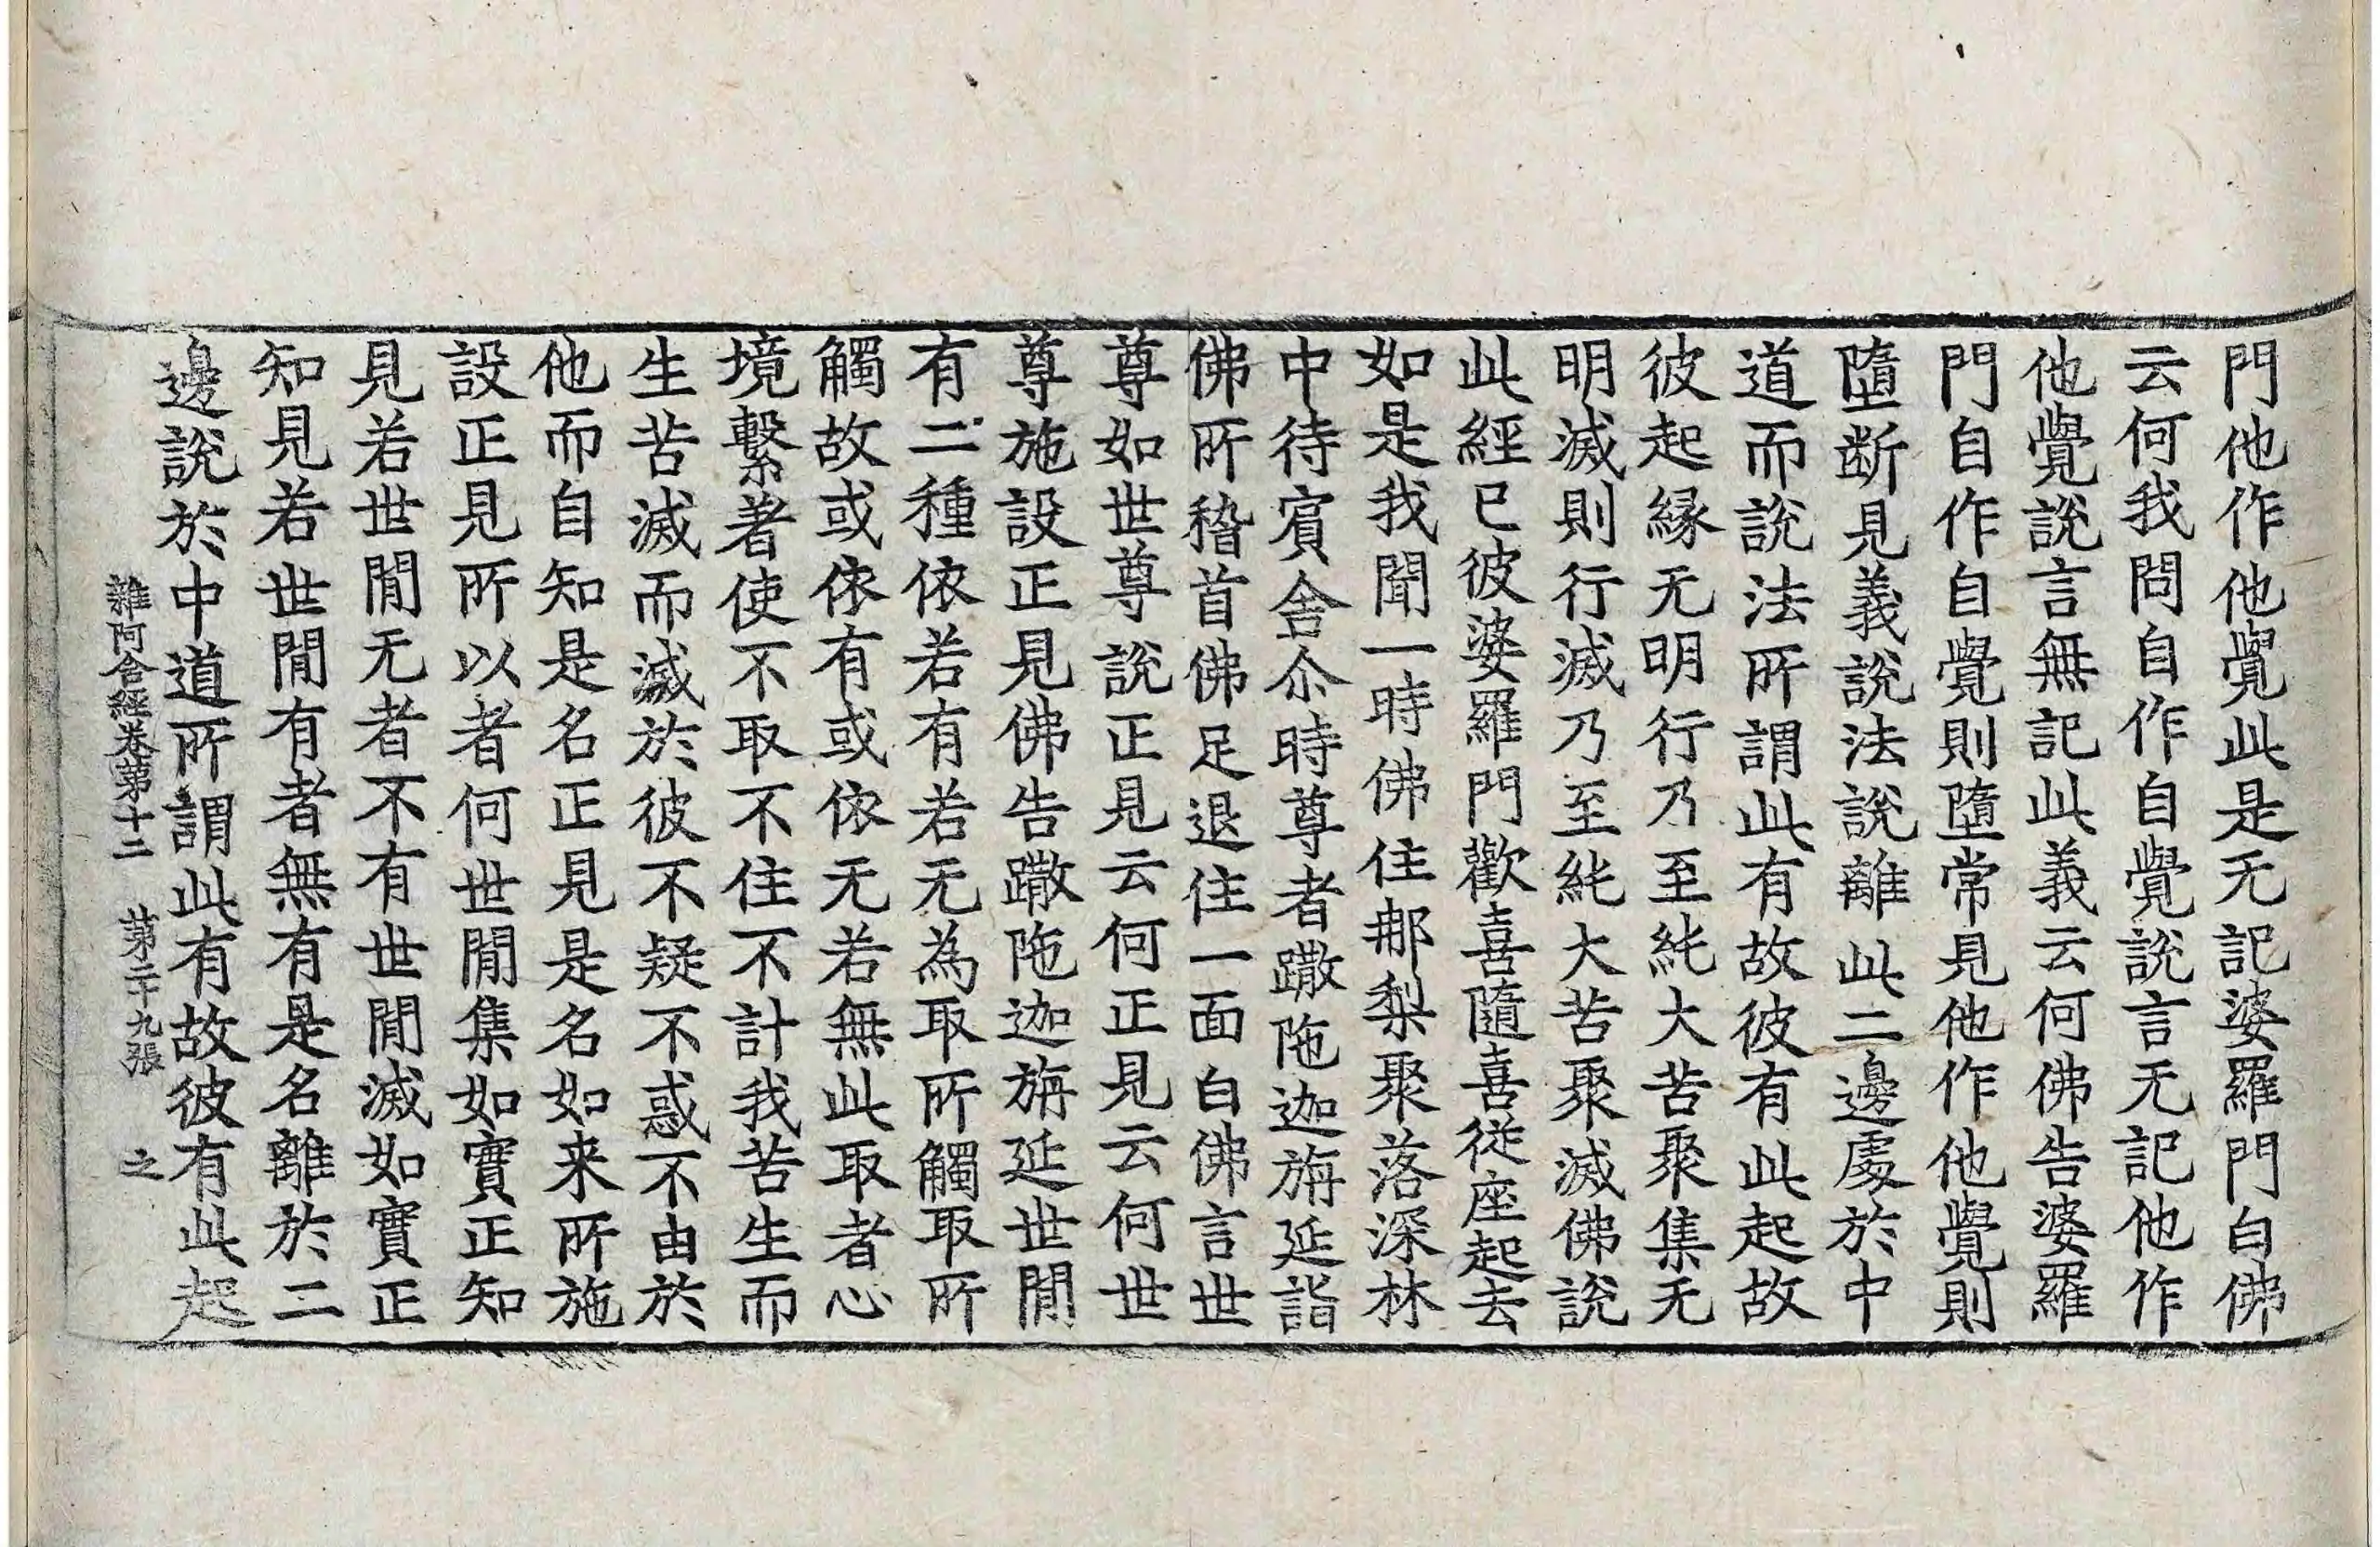 門他作他覺此是无記婆羅門白佛
云何我問自作自覺說言无記他作
他覺說言無記此義云何佛告婆羅
門自作自覺則墮常見他作他覺則
墮断見義說法說離此二邊處於中
道而說法所謂此有故彼有此起故
彼起緣无明行乃至純大苦聚集无
明滅則行滅乃至純大苦聚滅佛說
此經已彼婆羅門歡喜隨喜從座起去
如是我聞一時佛住那梨聚落深林
中待賓舍尒時尊者𨅖陁迦旃延詣
佛所稽首佛足退住一面白佛言世
尊如世尊說正見云何正見云何世
尊施設正見佛告𨅖陁迦旃延世閒
有二種依若有若无為取所觸取所
觸故或依有或依无若無此取者心
境繫著使不取不住不計我苦生而
生苦滅而滅於彼不疑不惑不由於
他而自知是名正見是名如来所施
設正見所以者何世閒集如實正知
見若世閒无者不有世閒滅如實正
知見若世閒有者無有是名離於二
邊說於中道所謂此有故彼有此起
雜阿含經卷第十二 第二十九張 之